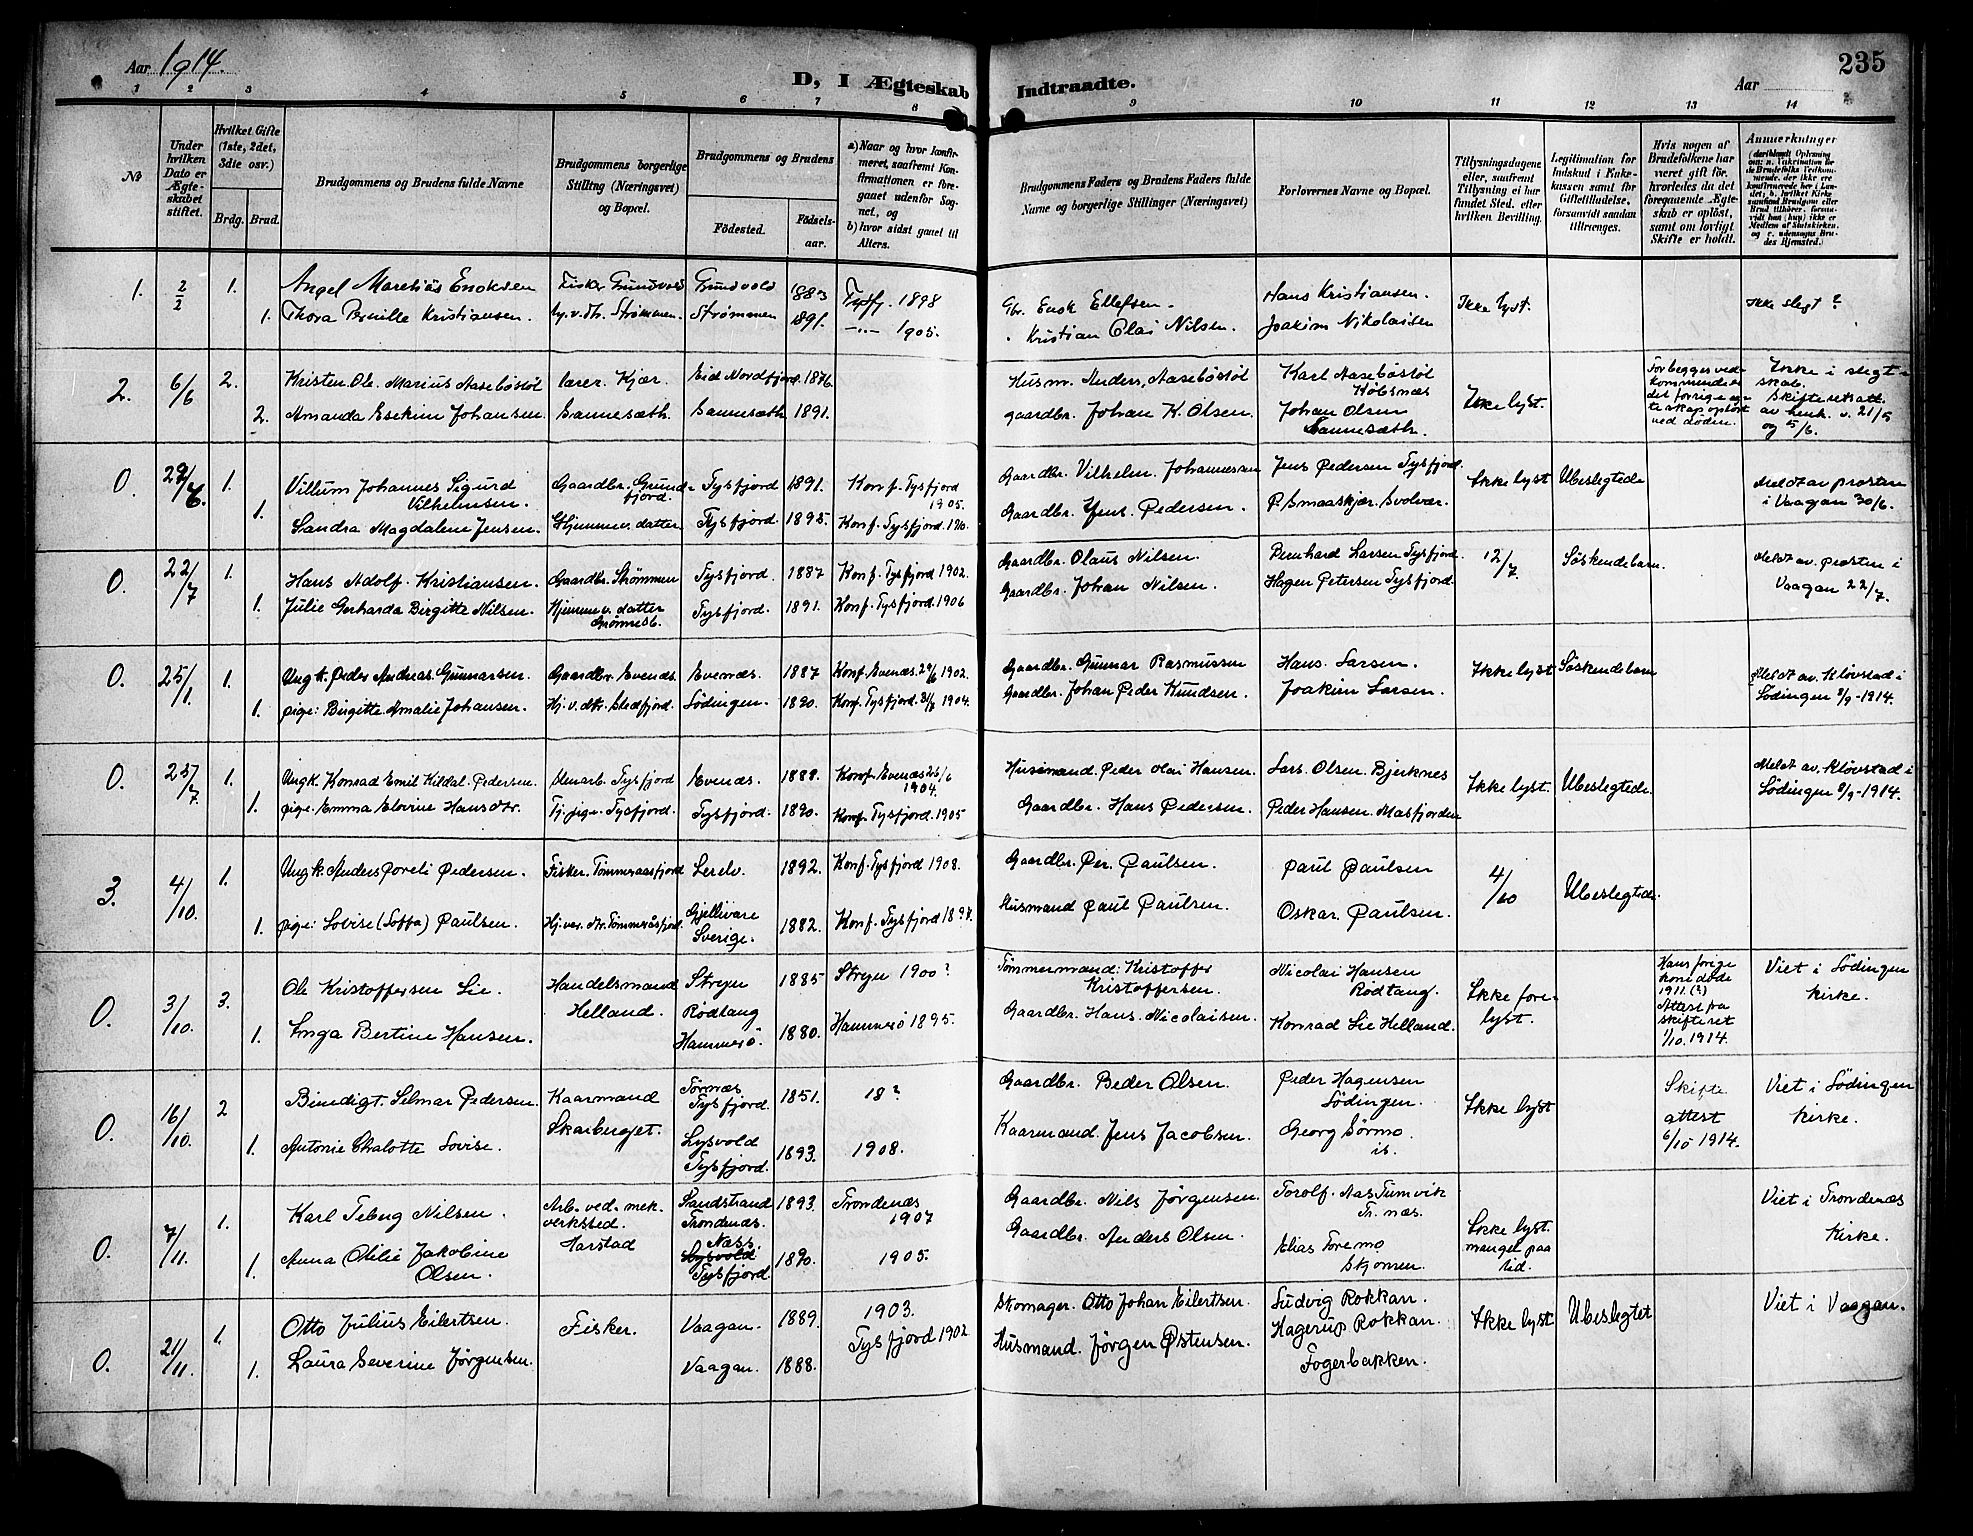 Aar 1914.
D, I Ægteskab Indtraadte.
Aar
235
1 2 3 4 5 6 7 8 9 10 11 12 13 14
No
Under hvilken Dato er Ægteskabet stiftet.
Hvilket Gifte (1ste, 2det, 3die osv.)
Brdg. Brud.
Brudgommens og Brudens fulde Navne
Brudgommens borgerlige Stilling (Næringsvei) og Bopæl.
Brudgommens og Brudens
Fødested. Fødselsaar.
a) Naar og hvor konfirmeret, saafremt Konfirmationen er foregaaet udenfor Sognet, og
b) hvor sidst gaaet til Alters.
Brudgommens Faders og Brudens Faders fulde Navne og borgerlige Stillinger (Næringsvei)
Forlovernes Navne og Bopæl.
Tillysningsdagene eller, saafremt Tillysning ei har fundet Sted, efter hvilken Bevilling.
Legitimation for Indskud i Enkekassen samt for Giftetilladelse, forsaavidt saadan tiltrænges.
Hvis nogen af Brudefolkene har været gift før, hvorledes da det foregaaende Ægteskab er opløst, samt om lovligt Skifte er holdt.
Anmerkninger
1. 2/2 1. Angel Mareliús Enoksen Fisker Grundvold Grundvold 1883 Tysfj. 1898 Gbr. Enok Ellefsen. Hans Kristiansen. Ikke lyst. Ikke slegt?
1. Thora Pernille Kristiansen. hj.v.dtr. Strømmen. Strømmen 1891. —"— 1905. " Kristian Olai Nilsen. Joakim Nikolaisen
2. 6/6 2. Kristen Ole Marius Aasebøstøl lærer. Kjær. Eid Nordfjord. 1876 Husm. Anders Aasebøstøl Karl Aasebøstøl Kobsnæs Ikke lyst. Forbegges vedkommende er det forrige egteskap opløst ved døden. Ikke i slegtskab. Skifteretsatt. av henh. v. 21/5 og 5/6.
2. Amanda Esekine Johansen Sannesæth. Sannesæth. 1891. gaardbr. Johan K. Olsen Johan Olsen Sannesæth.
0. 29/6 1. Villum Johannes Sigurd Vilhelmsen. Gaardbr. Grundfjord. Tysfjord 1891. Konf. Tysfjord 1905. Gaardbr. Vilhelm Johannesen Jens Pedersen Tysfjord. Ikke lyst Ubeslegtede Meldt av prosten i Vaagan 30/6.
1. Sandra Magdalene Jensen. Hjemmev. datter Tysfjord. 1895. Konf. Tysfjord. 1910. Gaardbr. Jens. Pedersen. P. Smaaskjær. Svolvær.
0. 22/7 1. Hans Adolf Kristiansen. Gaardbr. Strømmen Tysfjord. 1887 Konf. Tysfjord 1902. Gaardbr. Olaus Nilsen. Bernhard Larsen Tysfjord. 12/7. Søskendebarn. Meldt av prosten i Vaagan 22/7.
1. Julie Gerharda Birgitte Nilsen. Hjemmev. datter Tysfjord. 1891. Konf. Tysfjord. 1906 Gaardbr. Johan Nilsen. Hagen Petersen Tysfjord.
0. 25/1. 1. Ungk. Peder Andreas Gunnarsen. Gaardbr. Evenes. Evenæs. 1887 Konf. Evenæs 29/6 1902. Gaardbr. Gunnar Rasmussen Hans. Larsen. Ikke lyst Søskendebarn Meldt av. Kløvstad i Lødingen 8/9-1914.
1. pige: Birgitte Amalie Johansen. Hj.v.dtr. Stedfjord. Lødingen. 1890. Konf. Tysfjord. 1904. Gaardbr. Johan Peder Knudsen. Joakim Larsen.
0. 25/7. 1. Ungk. Konrad Emil Kildal Pedersen. Tysfjord Evenæs. 1888. Konf. Evenæs 25/6 1904. Husmand. Peder Olai Hansen. Lars. Olsen. Bjerknes Ikke lyst. Ubeslegtede. Meldt av. Kløvstad i Lødingen 8/9-1914.
1. pige. Emma Elovine Hansdtr. Tj. pige. Tysfjord. Tysfjord. 1890. Konf. Tysfjord. 1905 Gaardbr. Hans Pedersen. Peder Hansen. Masfjorden
3. 4/10. 1. Ungk. Anders Poreli Pedersen. Fisker. Tømmeraasfjord Lerelv. 1892. Konf. Tysfjord 1908. Gaardbr. Per. Paulsen. Paul Paulsen 4/10 Ubeslegtede.
1. pige: Lovise (Soffa) Paulsen. Hj.ver. dtr. Tømmeråsfjord Gjellivare Sverige. 1882. Konf. Tysfjord Husmand Paul Paulsen. Oskar. Paulsen.
0. 3/10. 3. Ole Kristoffersen Lie. Handelsmand Helland. Stryn 1885 Stryn 1900? Tømmermand: Kristoffer Kristoffersen. Nicolai Hansen Rødtang. Ikke forelyst. Hans forige kone døde 1911. (?) Attest fra skifteret 1/10. 1914. Viet i Lødingen kirke.
1. Inga Bertine Hansen. Rødtang Hammerø. 1880. Hammerø 1895. Gaardbr. Hans. Nicolaisen. Konrad Lie Helland.
0. 16/10. 2 Benedigt. Selmar Pedersen. Kaarmand Skarberget. Tørnæs Tysfjord. 1851. 18? Gaardbr. Beder Olsen. Peder Hagensen Lødingen. Ikke lyst Skifte attest 6/10 1914. Viet i Lødingen kirke.
1. Antonie Chalotte Lovise. Lysvold Tysfjord. 1893. 1908. Kaarmand. Jens Jacobsen. Georg Sørmo. is.
0. 7/11. 1. Karl Teberg Nilsen. Arb. ved. mek. verksted. Harstad Sandstrand Trondenæs. 1893. Trondenæs 1907 Gaardbr. Nils Jørgensen. Torolf. Aas Tumvik Tr. næs. Ikke lyst. mangel paa tid. Viet i Trondenæs kirke.
1. Anna Otelie Jakobine Olsen. Næss. Lysvold Tysfjord. 1890. 1905. Gaardbr. Anders Olsen. Elias Foremo Skjomen.
0. 21/11. 1. Otto Julius Eilertsen Fisker. Vaagan. 1889. 1903. Skomager. Otto Johan Eilertsen. Ludvig Rokkan. Ikke lyst Ubeslegtet Viet i Vaagan.
1. Laura Severine Jørgensen. Vaagan. 1888. Tysfjord 1902 Husmand. Jørgen Østensen. Hagerup Rokkan. Fogerbakken.